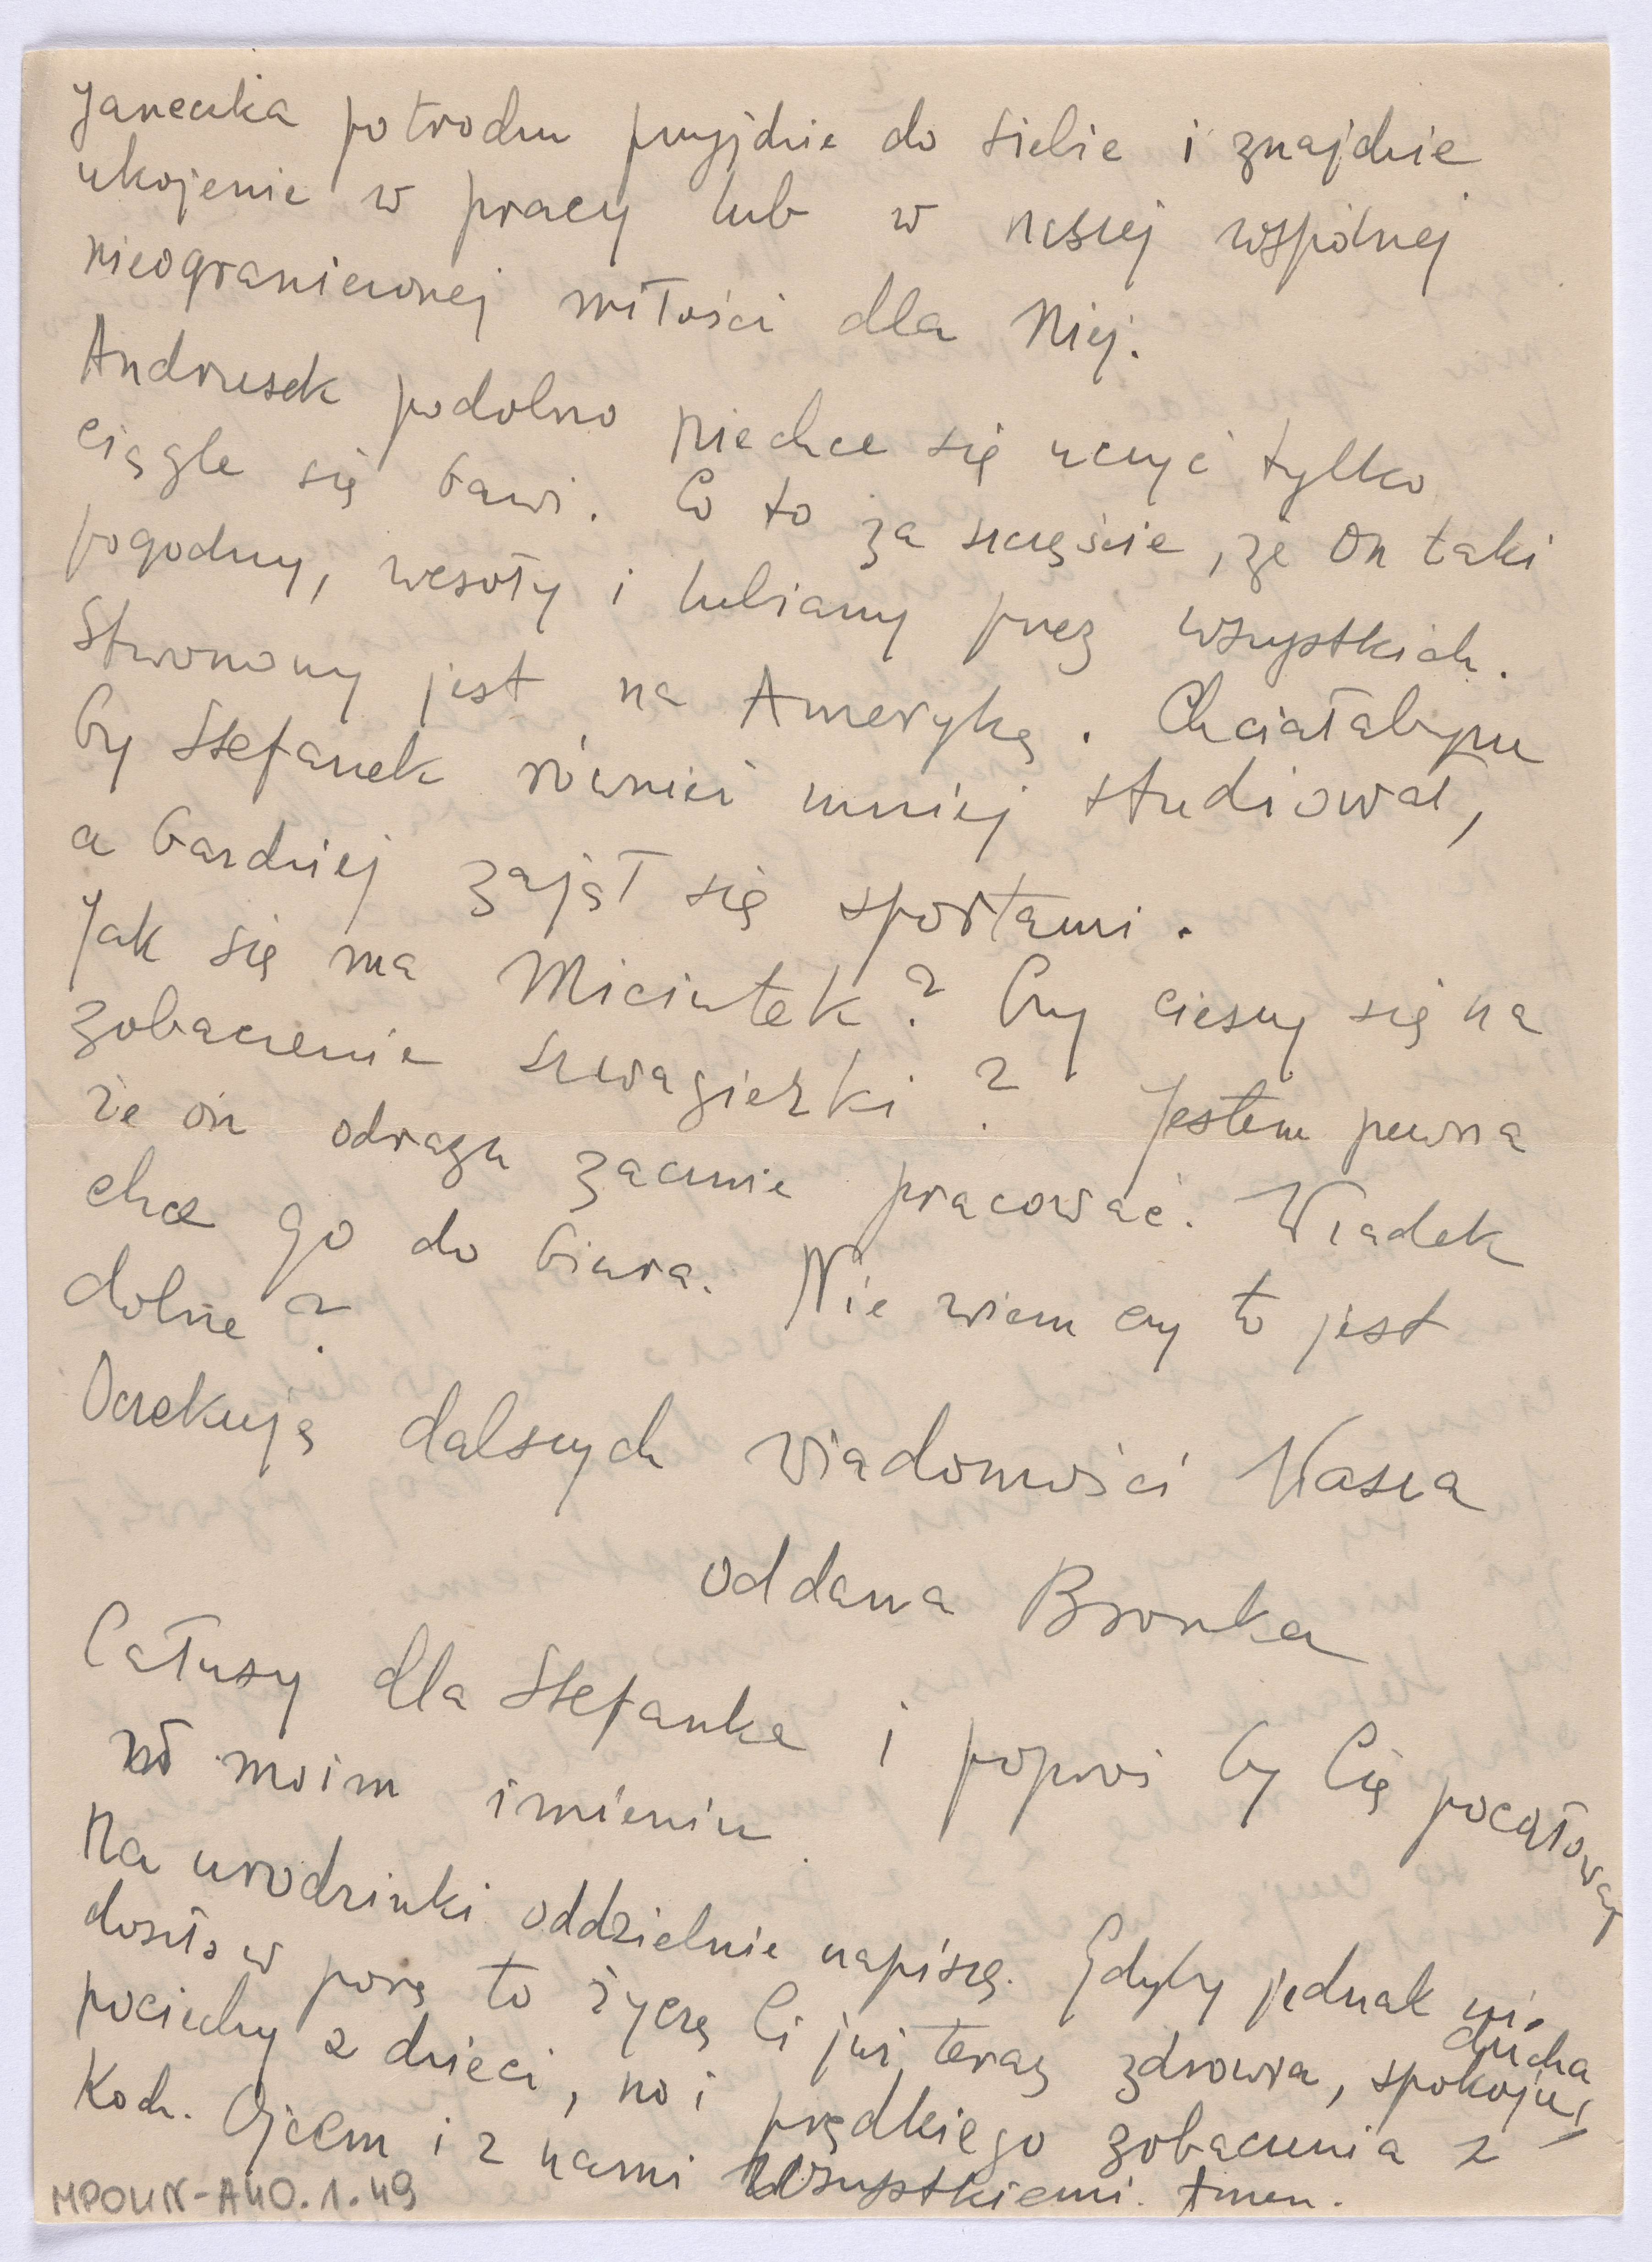 Janeczka potrochu przyjdzie do siebie i znajdzie
ukojenie w pracy lub w naszej wspólnej
nieograniczonej miłości dla Niej.
Andrzusek podobno niechce się uczyć tylko
ciągle się bawi. Co to za szczęście, że On taki
pogodny, wesoły i lubiany przez wszystkich.
Stworzony jest na Amerykę. Chciałabym
by Stefanek również mniej studiował,
a bardziej zajął się sportami.
Jak się ma Miciutek? Czy cieszy się na
zobaczenie szwagierki? Jestem pewna
że on odrazu zacznie pracować. Władek
chce go do biura. Nie wiem czy to jest
dobre?
Oczekuję dalszych wiadomości Wasza
oddana Bronka
Całusy dla Stefanka i poproś by Cię pocałował
w moim imieniu.
Na urodzinki oddzielnie napiszę. Gdyby jednak nie
doszło w porę to życzę Ci już teraz zdrowia, spokoju ducha,
pociechy z dzieci, no i prędkiego zobaczenia z
Koch. Ojcem i z nami wszystkiemi. Amen.
MPOLIN-A40.1.49